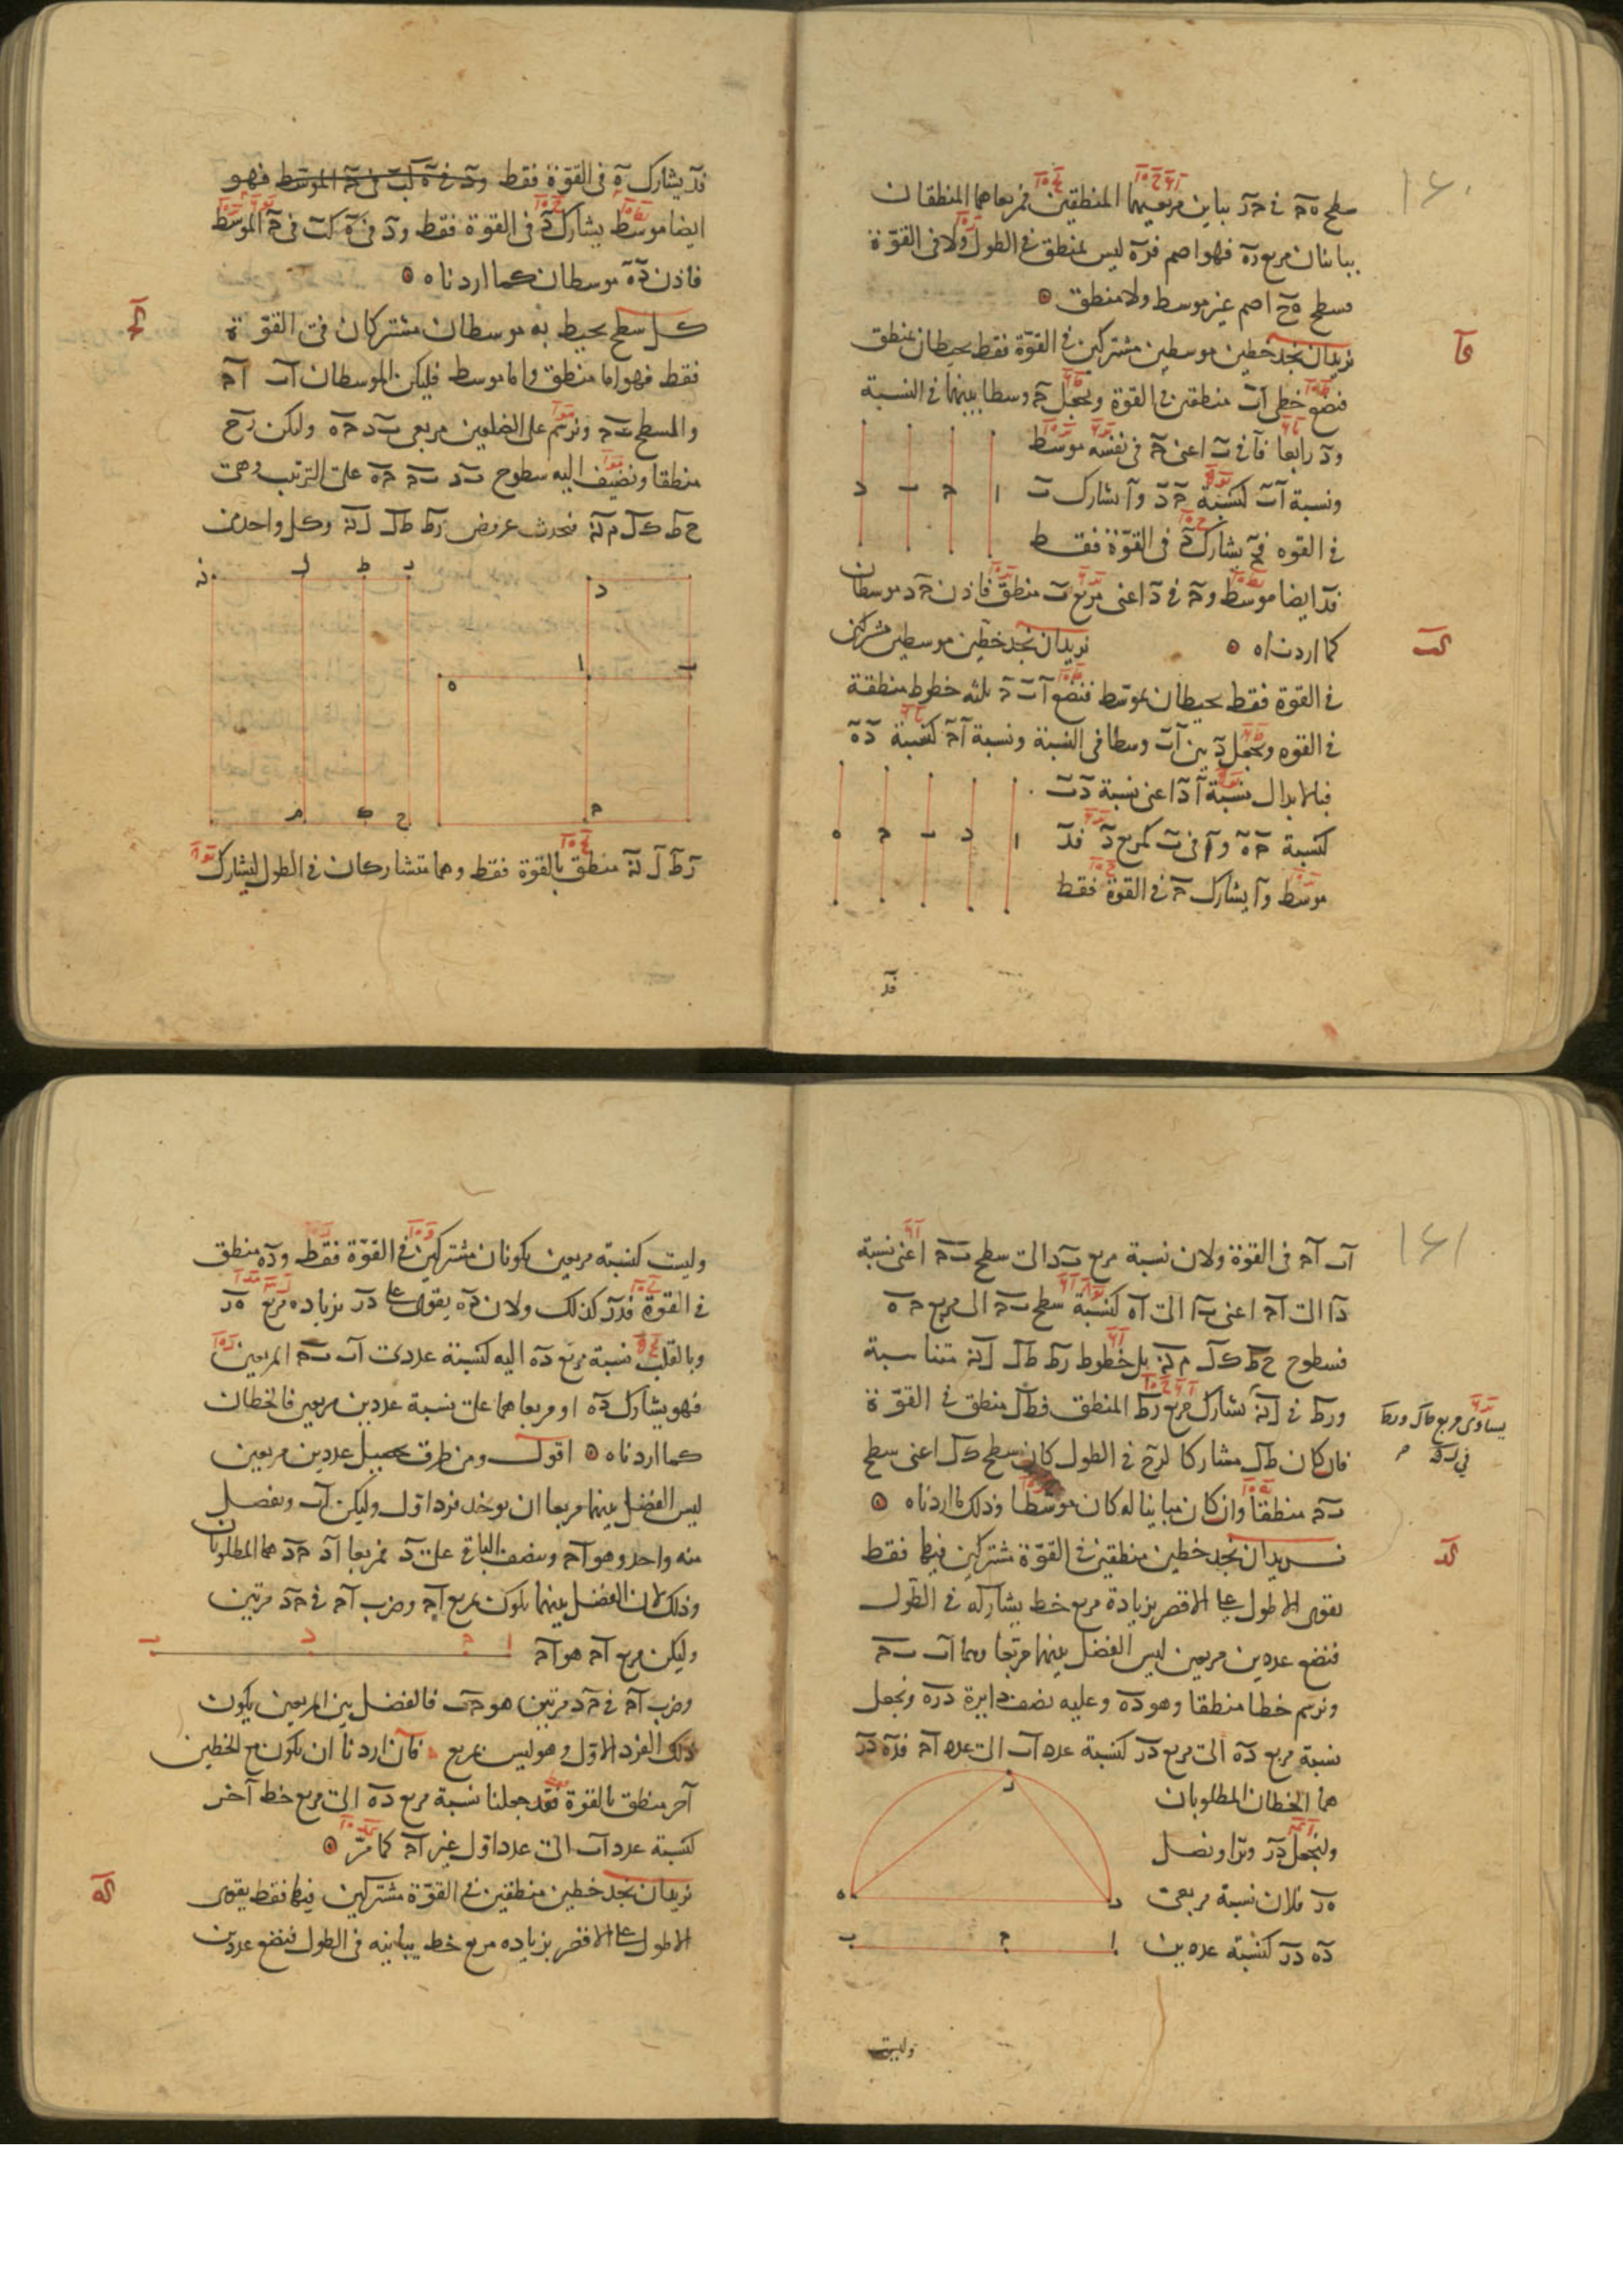 ١٤٠
سطح ه‍ح في حر يباين مربعيهما المنطقين فمربعاهما المنطقان
يباينان مربع ره فهو اصم فره ليس بمنطق في الطول ولا في القوة
فسطح هح اصم غير موسط ولا منطق
كا
نريدان نجد خطين موسطين مشتركين في القوة فقط يحيطان بمنطق
فنضع خطى اب منطقين في القوة ونجعل ح وسطا بينهما في النسبة
ود رابعا فآ في ب اعنى ح في نفسه موسط
ونسبة اب كنسبة ح د وآ يشارك ب
في القوه فح يشارك د في القوة فقط
ا ح ب د
فد ايضا موسط وح في د اعنى مربع ب منطق فاذن ح د موسطان
كما اردناه
كب
نريدان نجد خطين موسطين مشتركين
في القوة فقط يحيطان بموسط فنضع ا ب ح ثلثه خطوط منطقة
في القوه ونجعل د بين اب وسطا في النسبة ونسبة اح كنسبة ده
فبالابدال نسبة ا د اعنى نسبة د ب
كنسبة ح ه وآ في ب كمربع د فد
موسط وآ يشارك ح في القوة فقط
ا د ب ح ه
فد
فد يشارك ه في القوة فقط ود في ه كب في ح الموسط فهو
ايضا موسط يشارك د في القوة فقط ود في ه كب في ح الموسط
فاذن ده موسطان كما اردناه
كج
كل سطح يحيط به موسطان مشتركان في القوة
فقط فهو اما منطق واما موسط فليكن الموسطان اب اح
والسطح بح ونرسم على الضلعين مربعى بد حه وليكن رح
منطقا ونضيف اليه سطوح بد بح حه على الترتيب وهى
حط كل م‍ن فيحدث عروض رط طل لن وكل واحد من
ر ط ل ن
د
ب ا ه
ح
ح ك م
رط لن منطق بالقوة فقط وهما متشاركان في الطول لتشارك
١٤١
اب اح في القوة ولان نسبة مربع بد الى سطح بح اعنى نسبة
دا الى اح اعنى با الى اه كنسبة سطح بح الى مربع حه
فسطوح حط كل من بل خطوط رط طل لن متناسبة
ورط في لن يشارك مربع رط المنطق فطل منطق في القوة
يساوى مربع طل ورط
في لن
فان كان طل مشاركا لرح في الطول كان سطح كل اعنى سطح
بح منطقا وان كان مباينا له كان موسطا وذلك ما اردناه
كد
نريدان نجد خطين منطقين في القوة مشتركين فيها فقط
يقوى الاطول على الاقصر بزيادة مربع خط يشاركه في الطول
فنضع عددين مربعين ليس الفضل بينهما مربعا وهما اب بح
ونرسم خطا منطقا وهو ده وعليه نصف دايرة دره ونجعل
نسبة مربع ده الى مربع در كنسبة عدد اب الى عدد اح فده در
هما الخطان المطلوبان
ولنجعل در وترا ونصل
هر فلان نسبة مربعى
ده در كنسبة عددين
ر
ه د
ب ح ا
وليست
وليست كنسبة مربعين يكونان مشتركين في القوة فقط وده منطق
في القوة فدر كذلك ولان ده يقوى على در بزياده مربع هر
وبالقلب نسبة مربع ده اليه كنسبة عددى اب بح المربعين
فهو يشارك ده او مربعاهما على نسبة عددين مربعين فالخطان
كما اردناه اقول ومن طرق تحصيل عددين مربعين
ليس الفضل بينهما مربعا ان نوخذ فردا اول وليكن اب ونفصل
منه واحد وهو اح وننصف الباقى على د فمربعا اد حد هما المطلوبان
وذلك لان الفضل بينهما يكون مربع اح وضرب اح في حد مرتين
وليكن مربع اح هو اح
ا ح د ب
وضرب اح في حد مرتين هو حب فالفضل بين المربعين يكون
ذلك الفرد الاول وهو ليس بمربع فان اردنا ان يكون مع الخطين
آخر منطق بالقوة فقد جعلنا نسبة مربع ده الى مربع خط آخر
كنسبة عدد اب الى عدد اول غير اح كما مر
كه
نريدان نجد خطين منطقين في القوة مشتركين فيها فقط يقوى
الاطول على الاقصر بزياده مربع خط يباينه في الطول فنضع عددين